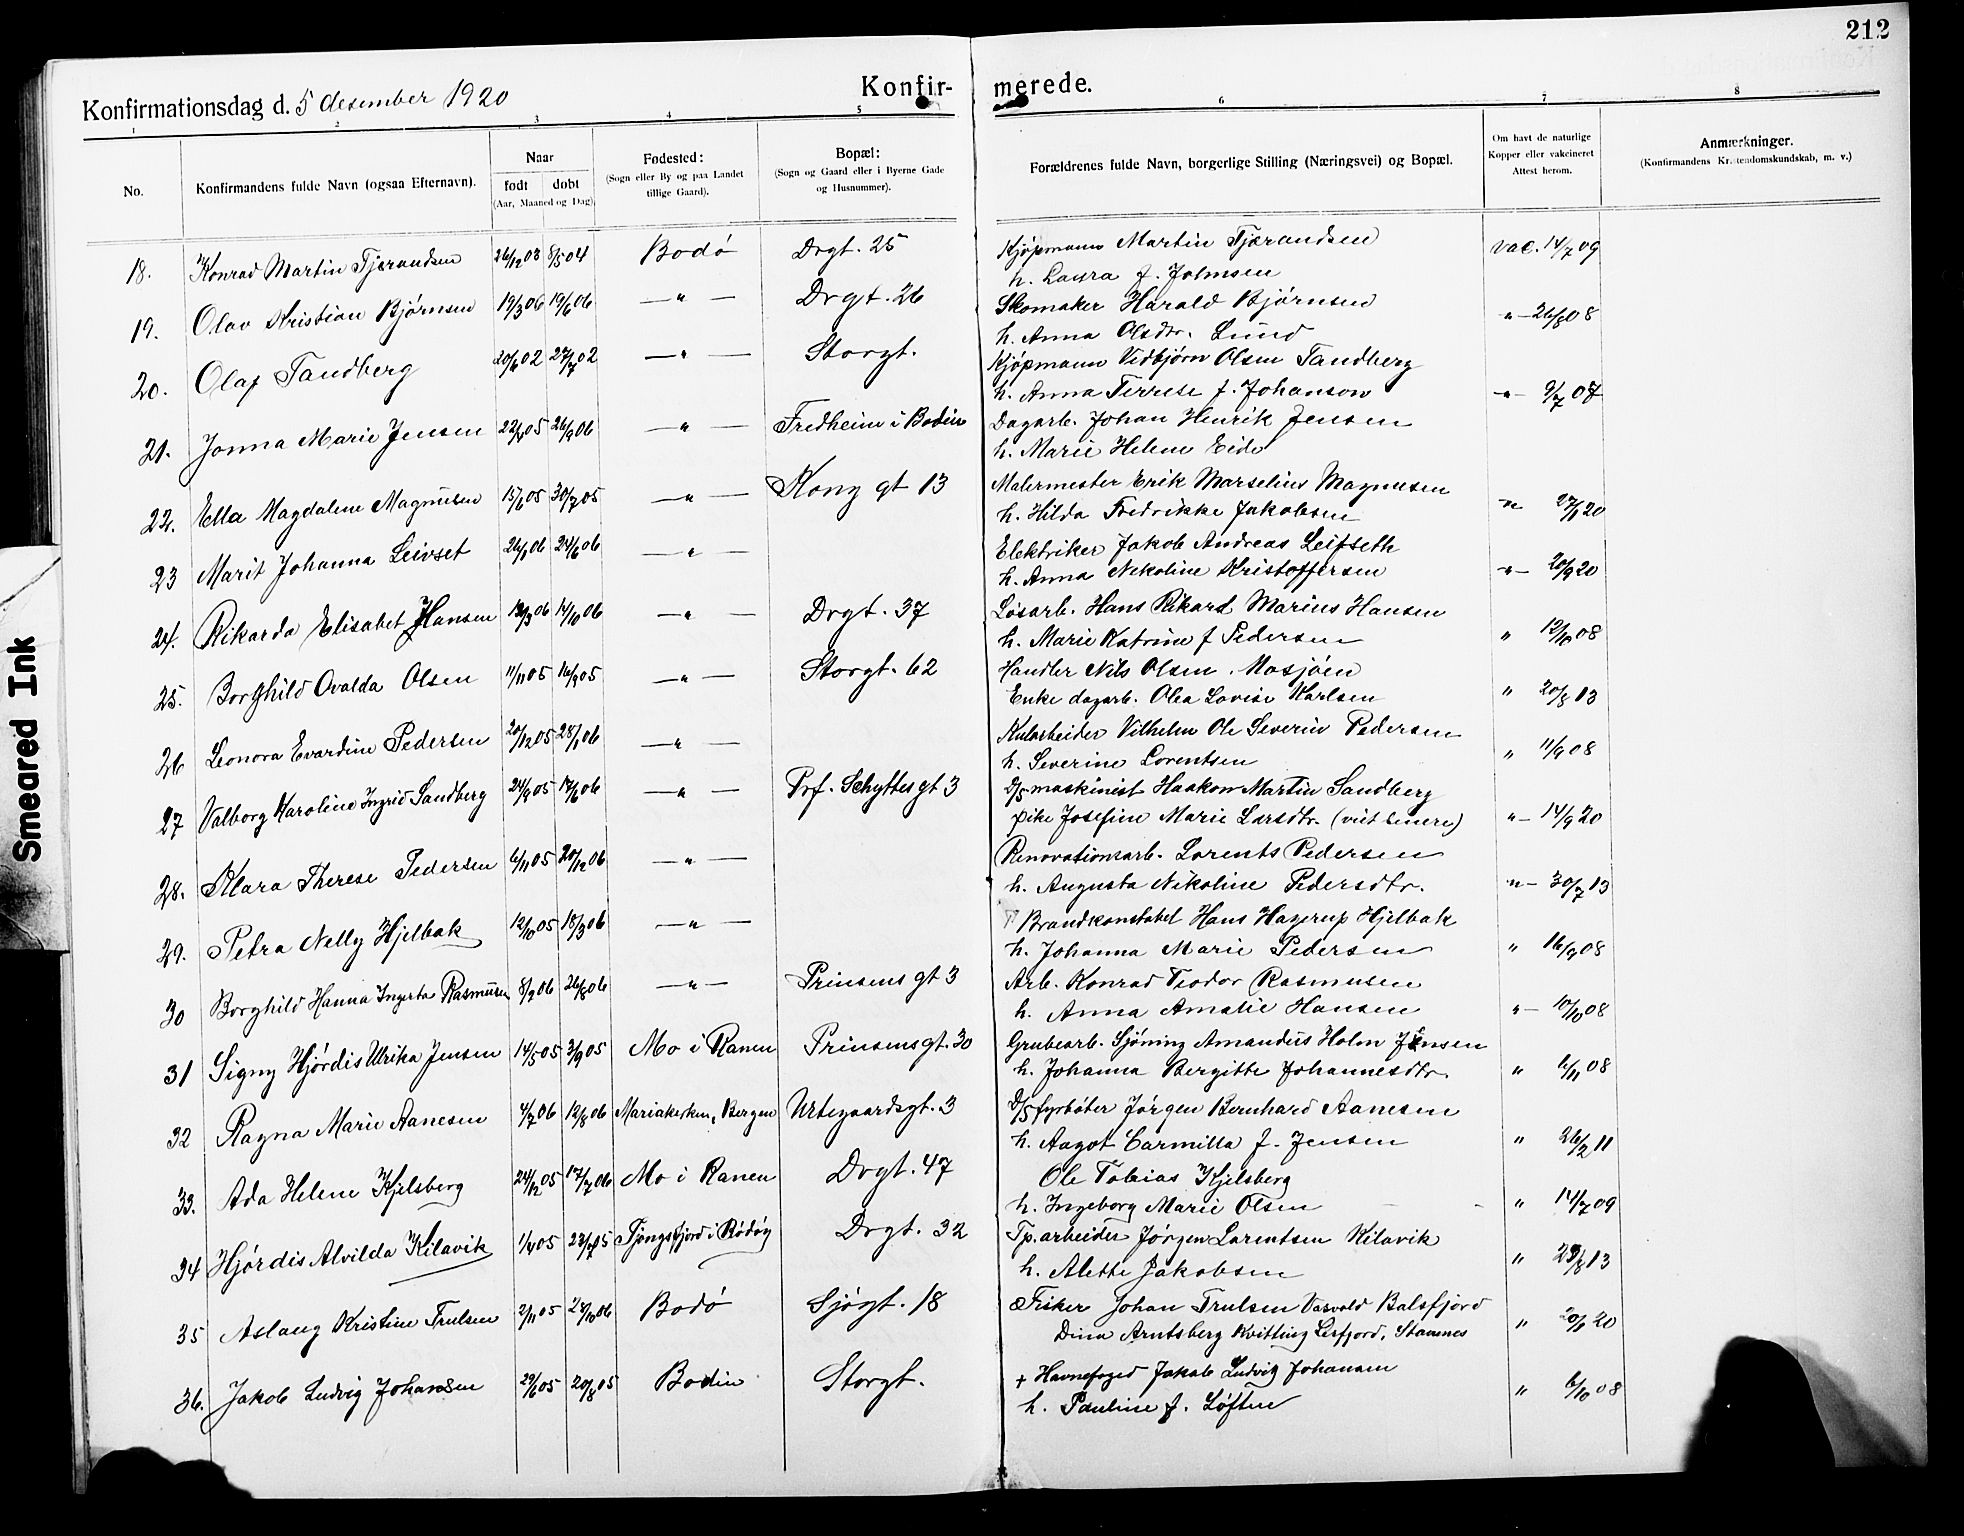 212
Konfirmationsdag d. 5 desember 1920
Konfir-
merede.
1 2 3 4 5 6 7 8
No.
Konfirmandens fulde Navn (ogsaa Efternavn).
Naar
født døbt
(Aar, Maaned og Dag).
Fødested:
(Sogn eller By og paa Landet
tillige Gaard).
Bopæl:
(Sogn og Gaard eller i Byerne Gade
og Husnummer).
Forældrenes fulde Navn, borgerlige Stilling (Næringsvei) og Bopæl.
Om havt de naturlige
Kopper eller vakcineret
Attest herom.
Anmærkninger.
(Konfirmandens Kristendomskundskab, m. v.)
18. Konrad Martin Tjærandsen 26/12 03 8/5 04 Bodø Drgt. 25 Kjøpmann Martin Tjærandsen vac. 14/7 09
h. Laura f. Johnsen
19. Olav Kristian Bjørnsen 19/3 06 19/6 06 —"— Drgt. 26 Skomaker Harald Bjørnsen "— 26/8 08
h. Anna Olsdtr. Lund
20. Olaf Tandberg 20/6 02 27/7 02 —"— Storgt. Kjøpmann Vidbjørn Olsen Tandberg
h. Anna Terrese f. Johanson —"— 9/7 07
21. Jonna Marie Jensen 22/8 05 26/9 06 —"— Fredheim i Bodin Dagarb. Johan Henrik Jensen
h. Marie Helene Eide
22. Ella Magdalene Magnusen 15/6 05 30/7 05 —"— Kong gt 13 Malermester Erik Marselius Magnusen
h. Hilda Fredrikke Jakobsen —"— 27/1 20
23 Marit Johanna Leivset 26/1 06 24/6 06 —"— Elektriker Jakob Andreas Leifseth
h. Anna Nekoline Kristoffersen —"— 20/9 20
24. Rikarda Elisabet Hansen 13/3 06 14/10 06 —"— Drgt. 37 Løsarb. Hans Rikard Marius Hansen
h. Marie Katrine f Pedersen " 12/10 08
25. Borghild Ovalda Olsen 11/11 05 16/9 05 —"— Storgt. 62 Handler Nils Olsen. Mosjøen
Enke dagarb. Olea Lovise Karlsen " 20/8 13
26 Leonora Evardine Pedersen 20/12 05 28/1 06 —"— Kularbeider Vilhelm Ole Severin Pedersen
h. Severine Lorentsen " 11/9 08
27 Valborg Karoline Ingrid Sandberg 24/9 05 17/6 06 —"— Prf. Schyttes gt 3 D/S maskinist Haakon Martin Sandberg
pike Josefine Marie Larsdtr. (viet senere) "— 14/9 20
28. Klara Therese Pedersen 6/11 05 20/12 06 —"— Renovationsarb. Lorents Pedersen
h. Augusta Nikoline Pedersdtr. —"— 30/7 13
29. Petra Nelly Hjelbak 12/10 05 18/3 06 —"— Brandkonstabel Hans Hagerup Hjelbak
h. Johanna Marie Pedersen " 16/9 08
30 Borghild Hanna Ingerta Rasmusen 8/2 06 26/8 06 —"— Prinsens gt 3 Arb. Konrad Teodor Rasmusen
h. Anna Amalie Hansen "— 10/10 08
31 Signy Hjørdis Ulrika Jensen 14/5 05 3/9 05 Mo i Ranen Prinsensgt. 30 Grubearb. Sjøning Amandus Holm Jensen
h. Johanna Bergitte Johannesdtr. " 6/11 08
32 Ragna Marie Aanesen 4/7 06 12/8 06 Mariakerken, Bergen Urtegaardsgt. 3 D/S fyrbøter Jørgen Bernhard Aanesen
h. Aagot Carmilla f. Jensen " 26/2 11
33. Ada Helene Kjelsberg 24/12 05 17/7 06 Mo i Ranen Drgt. 47 Ole Tobias Kjelsberg
h. Ingeborg Marie Olsen " 14/7 09
34 Hjørdis Alvilda Kilavik 1/4 05 23/7 05 Tjongsfjord i Rødøy Drgt. 32 Tp.arbeider Jørgen Larentsen Kilavik
h. Alette Jakobsen " 23/8 13
35 Aslaug Kristine Trulsen 2/11 05 28/10 06 Bodø Sjøgt. 18 Fisker Johan Trulsen Vasvold Balsfjord
Dina Arntsberg Kvitting Leifjord, Stamnes " 20/1 20
36. Jakob Ludvig Johansen 29/6 05 20/8 05 Bodin Storgt. + Havnefoged Jakob Ludvig Johansen
h. Pauline f. Løften " 6/10 08
Smeared Ink